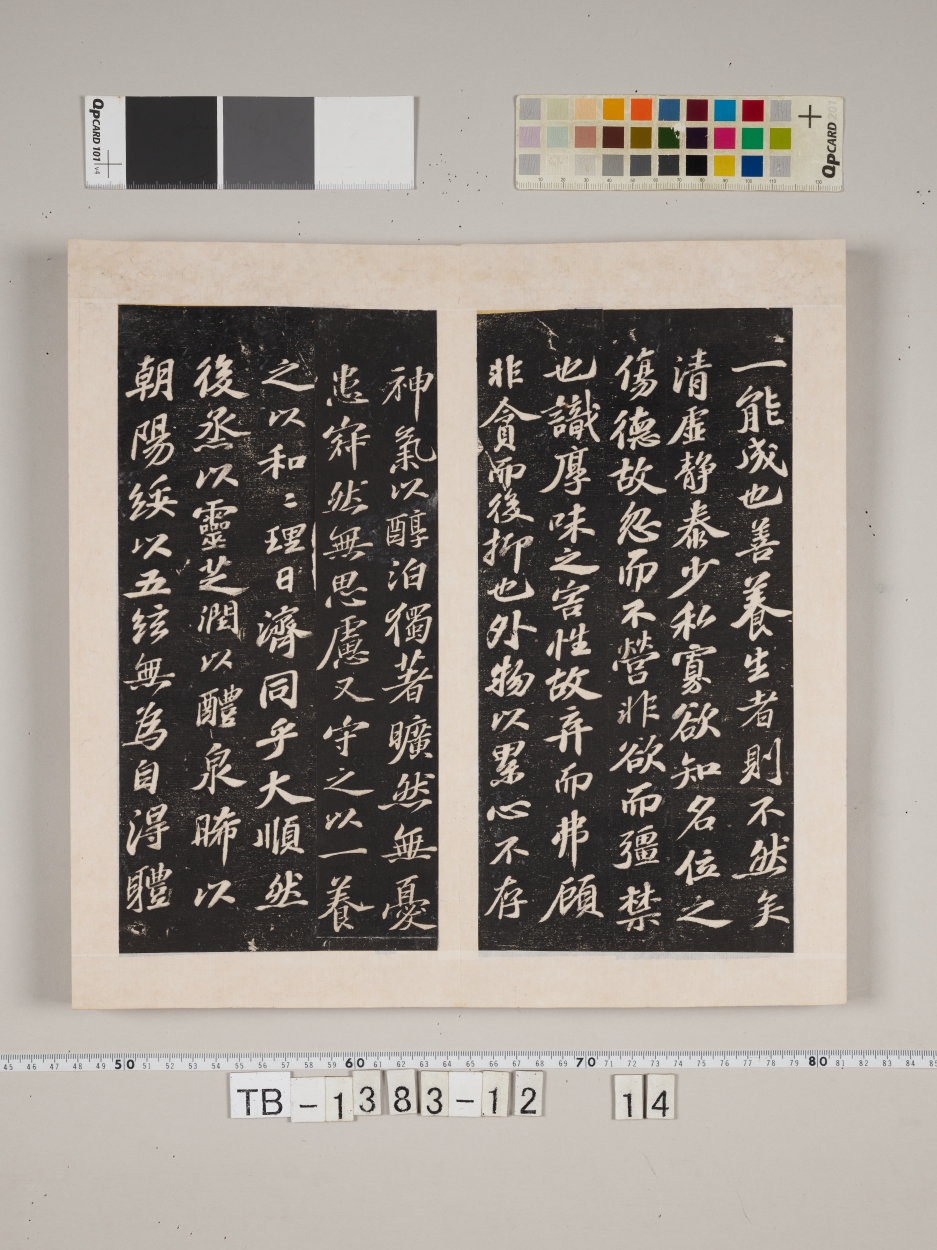 QpCARD 101 v4
QpCARD 201
一能成也善養生者則不然矣
清虛静泰少私寡欲知名位之
傷德故忽而不營非欲而彊禁
也識厚味之害性故弃而弗顧
非貪而後抑也外物以累心不存
神氣以醇泊獨著曠然無憂
患寂然無思慮又守之以一養
之以和〻理日濟同乎大順然
後烝以靈芝潤以醴泉晞以
朝陽綏以五絃無為自得軆
45 46 47 48 49 50 51 52 53 54 55 56 57 58 59 60 61 62 63 64 65 66 67 68 69 70 71 72 73 74 75 76 77 78 79 80 81 82 83 84 85
TB-1383-12 14